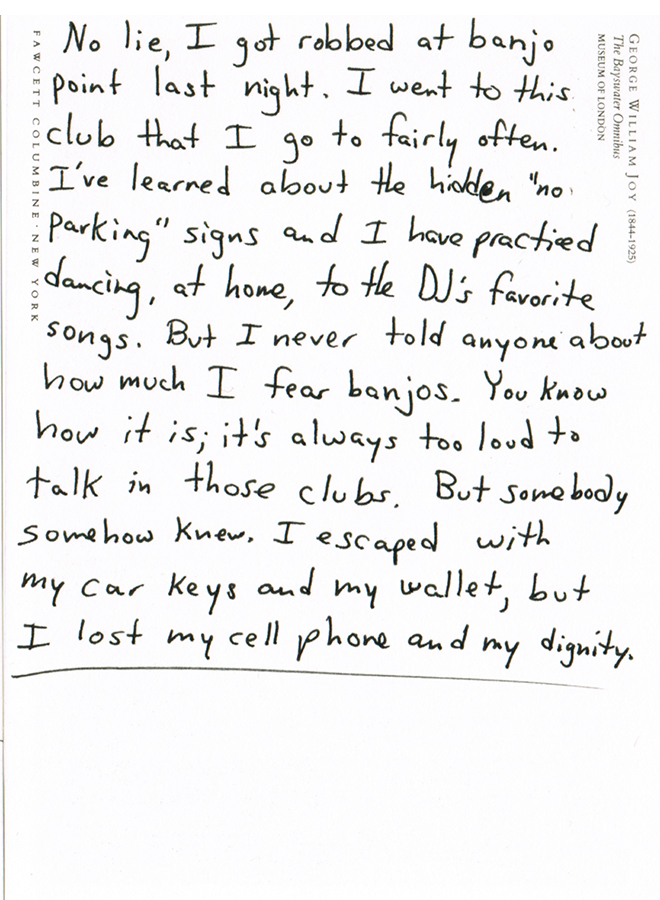 No lie, I got robbed at banjo
point last night. I went to this
club that I go to fairly often.
I've learned about the hidden "no
parking" signs and I have practiced
dancing, at home, to the DJ's favorite
songs. But I never told anyone about
how much I fear banjos. You know
how it is; it's always too loud to
talk in those clubs. But somebody
somehow knew. I escaped with
my car keys and my wallet, but
I lost my cell phone and my dignity.
GEORGE WILLIAM JOY (1844-1925)
The Bayswater Omnibus
MUSEUM OF LONDON
FAWCETT COLUMBINE · NEW YORK